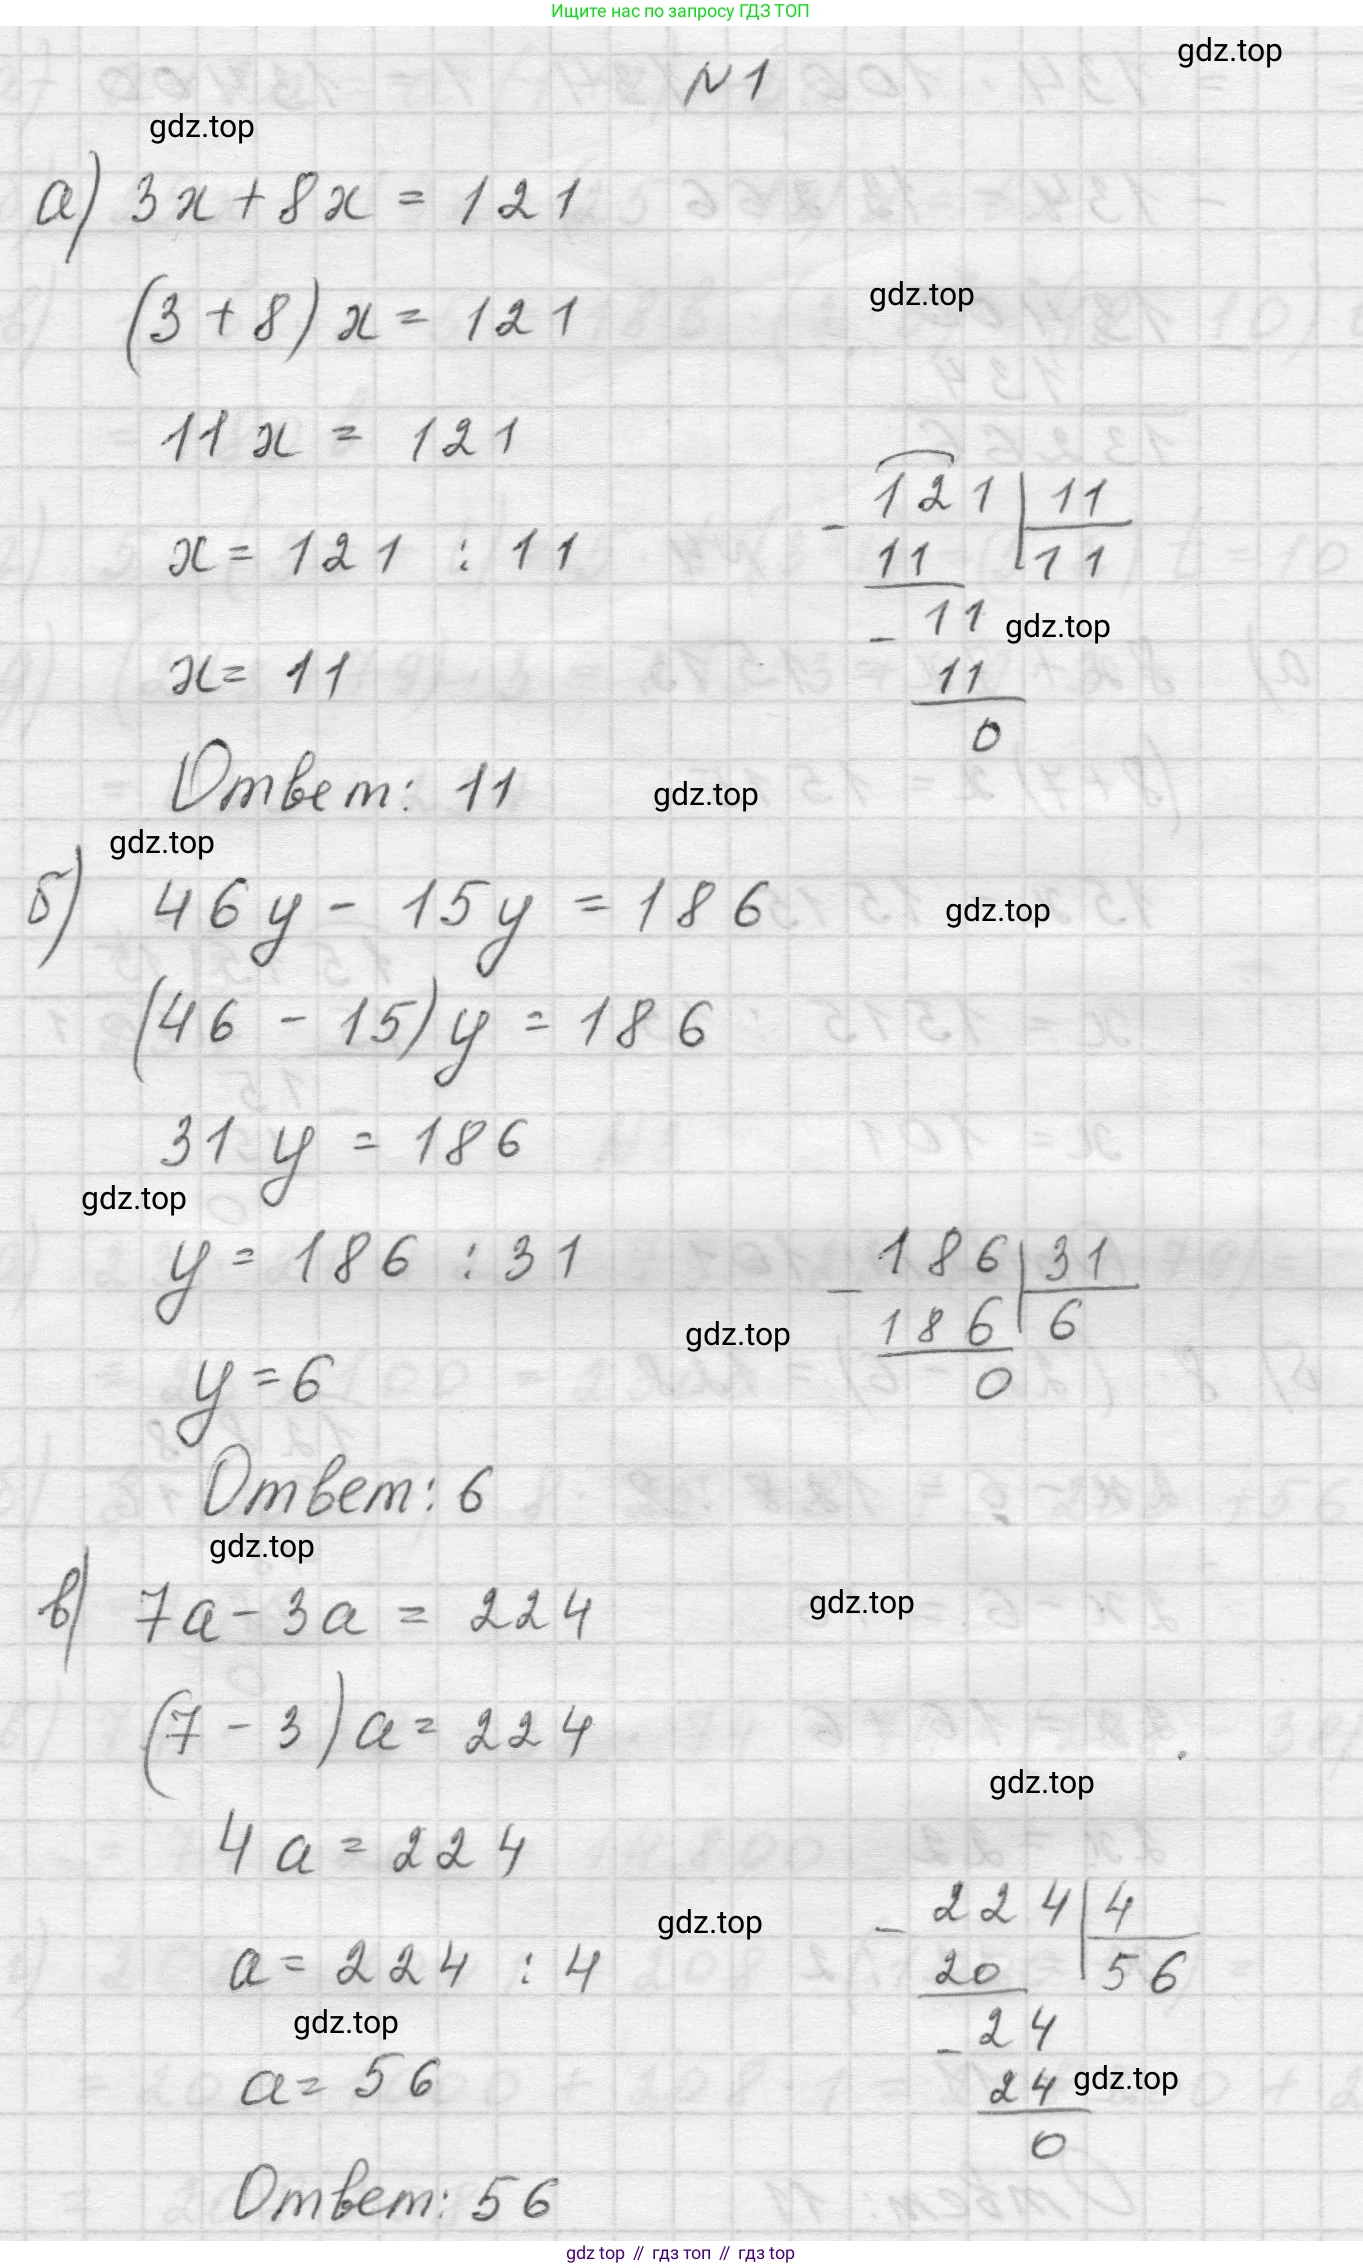 Ищите нас по запросу ГДЗ ТОП
gdz.top
№1
gdz.top
а) 3x + 8x = 121
(3 + 8) x = 121
gdz.top
11x = 121
121 | 11
x = 121 : 11
- 11 | 11
11 gdz.top
x = 11
- 11
0
Ответ: 11
gdz.top
gdz.top
б) 46y - 15y = 186
gdz.top
(46 - 15) y = 186
31y = 186
gdz.top
y = 186 : 31
186 | 31
gdz.top
- 186 | 6
y = 6
0
Ответ: 6
gdz.top
в) 7a - 3a = 224
gdz.top
(7 - 3) a = 224
gdz.top
4a = 224
gdz.top
- 224 | 4
a = 224 : 4
20 | 56
gdz.top
- 24
a = 56
24 gdz.top
0
Ответ: 56
gdz top // гдз топ // гдз top